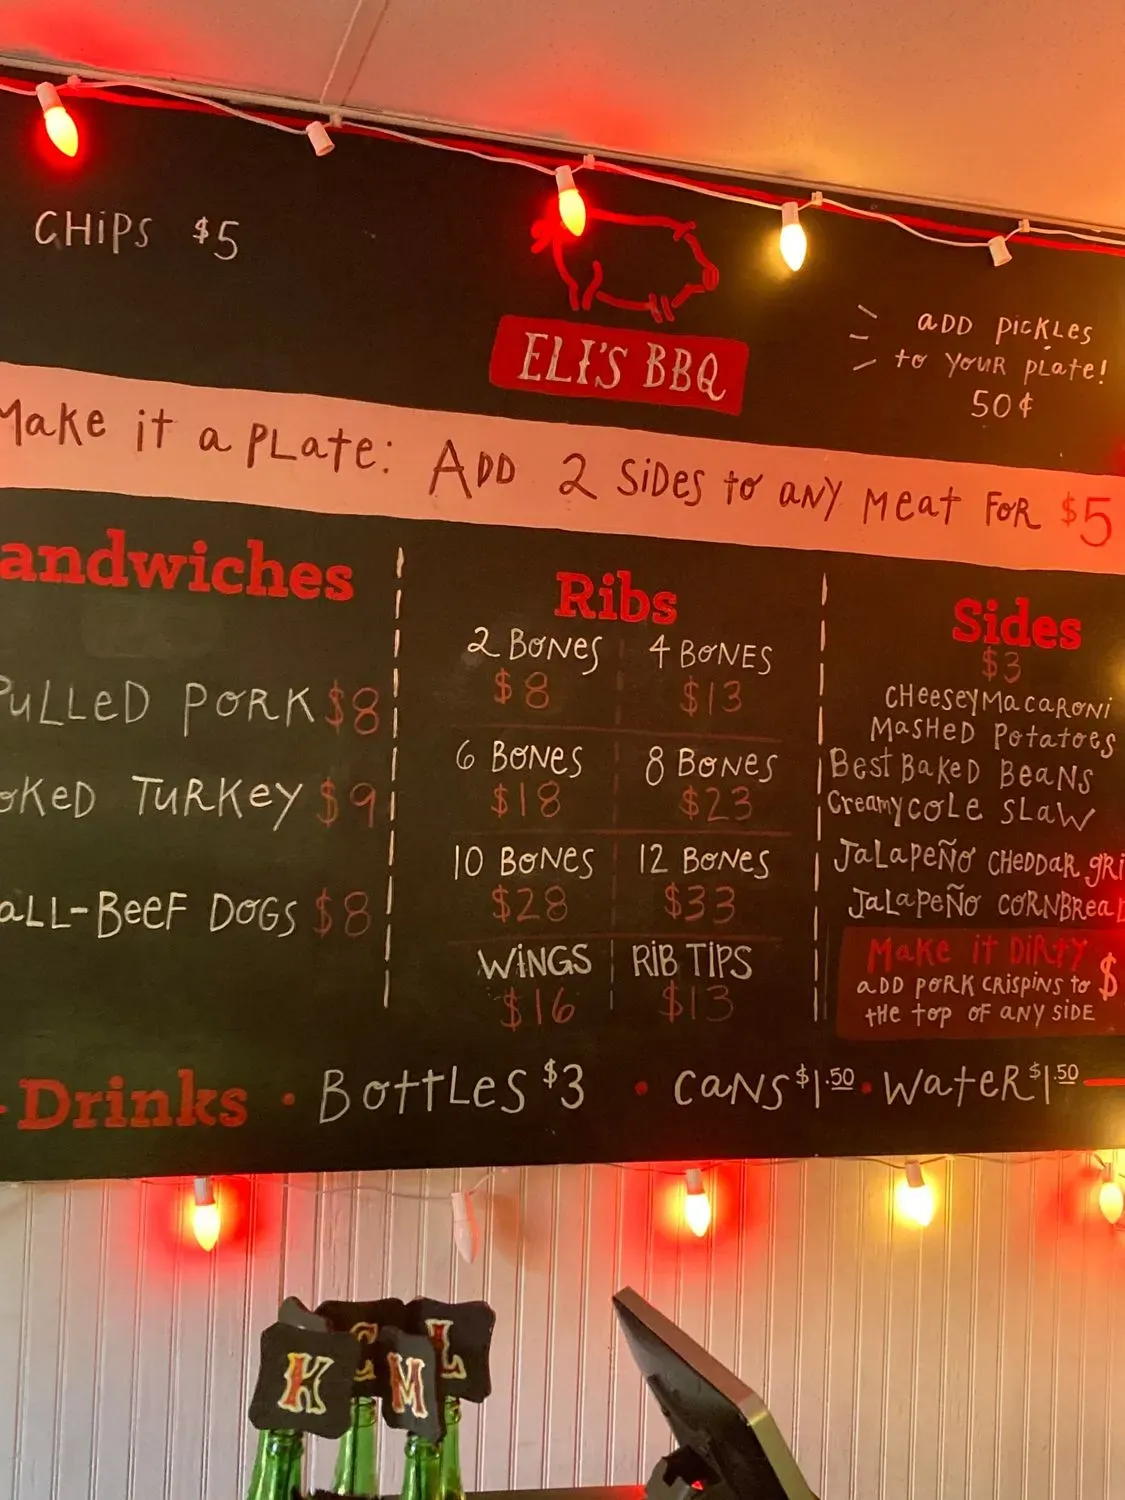 CHiPS $5
ELI'S BBQ
aDD PiCKLes
to YouR PLate!
50¢
Make it a PLate: ADD 2 SiDES to aNY Meat FoR $5
andwiches
PuLLeD PoRK $8
oKeD TuRKeY $9
aLL-BeeF DoGS $8
Ribs
2 BoNeS 4 BoNES
$8 $13
6 BoNeS 8 BoNeS
$18 $23
10 BoNeS 12 BoNeS
$28 $33
WiNGS RiB TiPS
$16 $13
Sides
$3
CHeeseY MaCaRoNi
MaSHeD PotatoeS
Best BaKeD BeaNS
CreamY CoLe SLaW
JaLaPeÑo CHeDDaR gRi
JaLaPeÑo CoRNBReaD
Make it DiRtY $
aDD PoRK CRiSPiNS to
tHe toP oF aNY SiDE
Drinks • BottLeS $3 • CaNS $1.50 • WateR $1.50
K
M
L